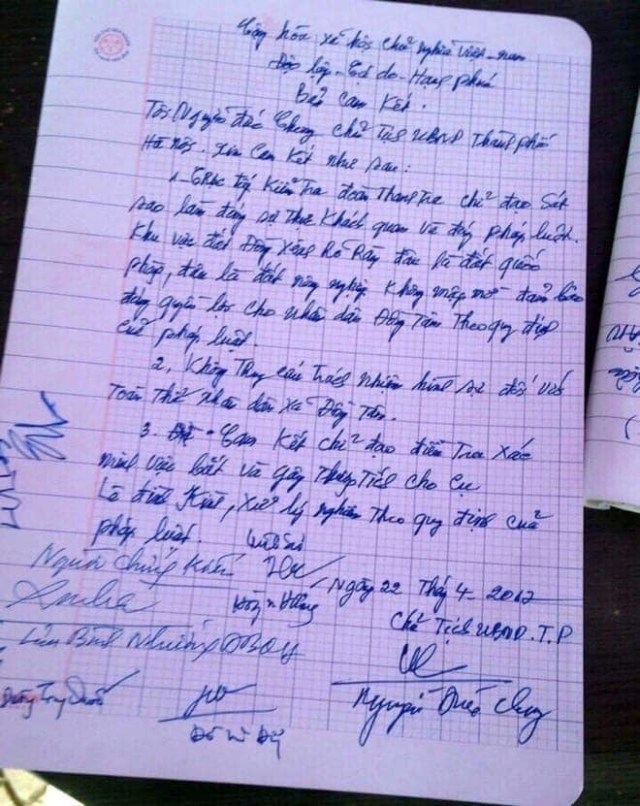 Cộng hòa xã hội chủ nghĩa Việt-nam
Độc lập - Tự do - Hạnh phúc
Bản Cam Kết.
Tôi Nguyễn Đức Chung chủ Tịch UBND Thành phố
Hà Nội. Xin Cam Kết như sau:
1- Trực tiếp Kiểm Tra đoàn Thanh Tra chỉ đạo Sát
sao làm đúng sự thật Khách quan và đúng pháp luật.
Khu vực đất Đồng Sênh Rõ Ràng đâu là đất quốc
phòng, đâu là đất nông nghiệp Không mập mờ đảm bảo
đúng quyền lợi cho nhân dân Đồng Tâm Theo quy định
của pháp luật.
2, Không Truy cứu Trách nhiệm hình sự đối với
Toàn Thể nhân dân xã Đồng Tâm.
3. Cam Kết chỉ đạo điều Tra Xác
minh việc bắt và gây Thương Tích cho Cụ
Lê đình Kình, Xử lý nghiêm Theo quy định của
pháp luật.
Người chứng Kiến
Ngày 22 Thg 4-2017
Chủ Tịch UBND.T.P
Nguyễn Đức Chung